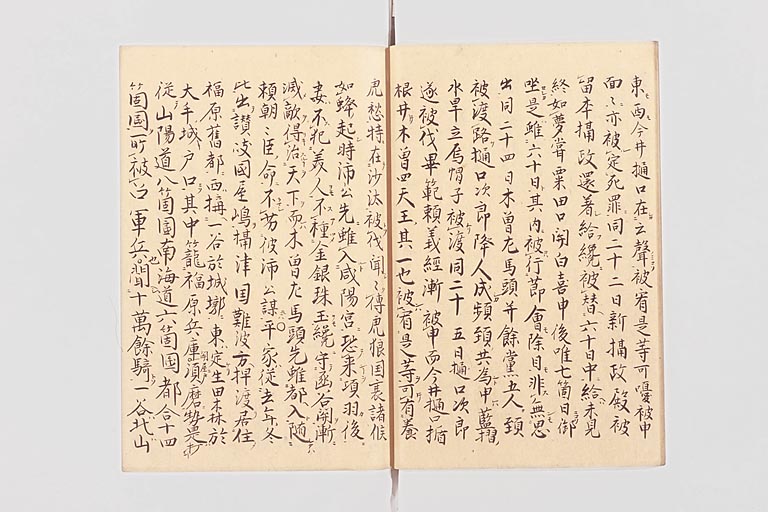 東西今井樋口在云聲被宥是等可嗄被申
面々亦被定死罪同二十二日新攝政殿被
留本攝政還着給纔被替六十日中給未見
終如夢嘗粟田口関白喜申後唯七箇日御
坐是雖六十日其内被行節會除目非無思
出同二十四日木曽左馬頭并餘黨五人頚
被渡路樋口次郎降人成頻頚共為申藍摺
水旱立烏帽子被渡同二十五日樋口次郎
遂被伐畢範頼義經漸被申而今井樋口楯
根井木曽四天王其一也被宥是等可有養
虎愁特在沙汰被伐聞々特虎狼国衰諸侯
如蜂起時沛公先雖入咸陽宮恐来項羽後
妻不犯美人不種金銀珠玉纔守函谷関漸
滅敵得治天下而木曽左馬頭先雖都入随
頼朝々臣命不劣彼沛公謀平家従去年冬
此出讃岐國屋嶋攝津国難波方押渡居住
福原舊都西構一谷於城墎東定生田森於
大手城戸口其中籠福原兵庫須磨勢是
従山陽道八箇國南海道六箇國都合十四
箇國所被召軍兵聞十萬餘騎一谷北山